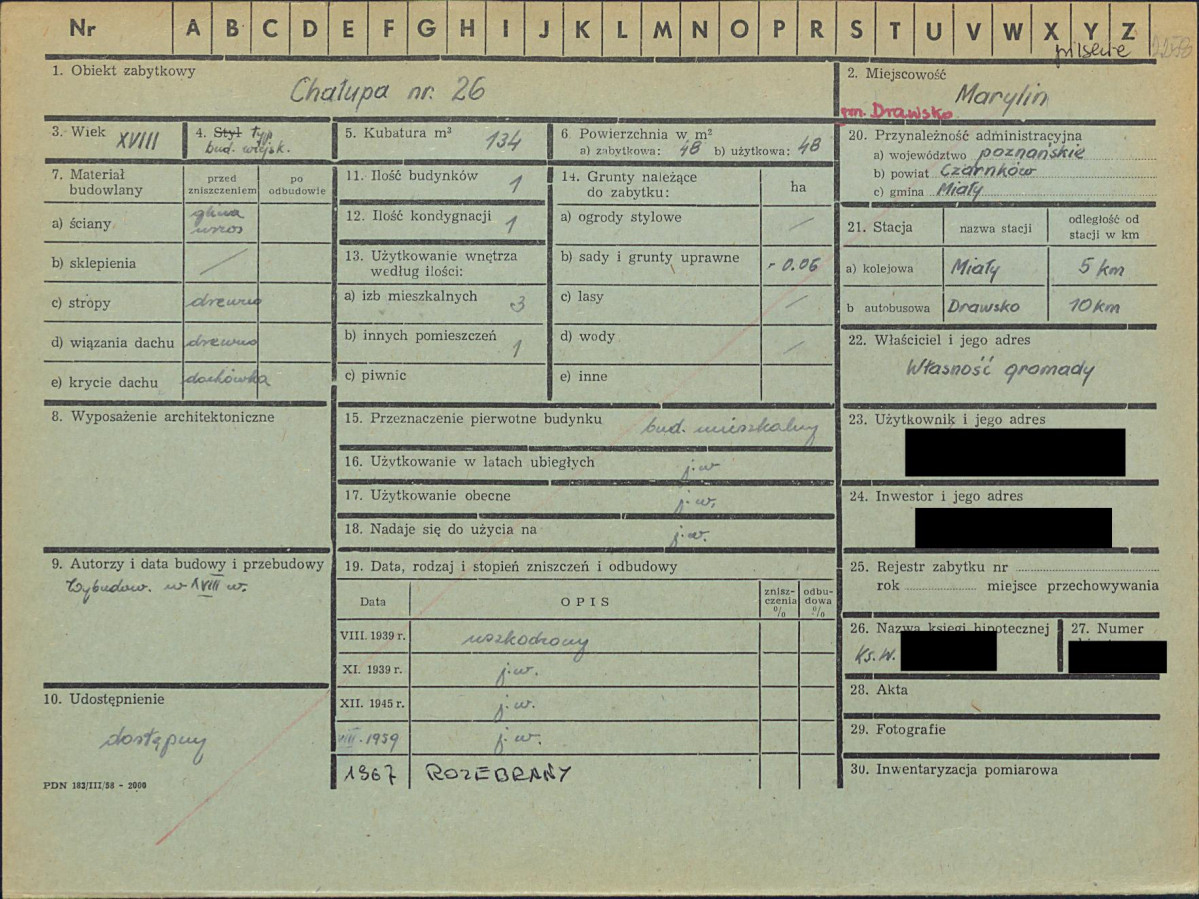 Nr A B C D E F G H I J K L M N O P R S T U V W X Y Z
pilskie 2258
1. Obiekt zabytkowy
Chałupa nr. 26
2. Miejscowość
Marylin
gm. Drawsko
3. Wiek XVIII
4. Styl typ
bud. wiejsk.
5. Kubatura m³ 134
6 Powierzchnia w m²
a) zabytkowa: 48 b) użytkowa: 48
7. Materiał budowlany
przed zniszczeniem
po odbudowie
a) ściany glina
wrzos
b) sklepienia /
c) stropy drewno
d) wiązania dachu drewno
e) krycie dachu dachówka
8. Wyposażenie architektoniczne
9. Autorzy i data budowy i przebudowy
Wybudow. w XVIII w.
10. Udostępnienie
dostępny
PDN 183/III/58 - 2000
11. Ilość budynków 1
12. Ilość kondygnacji 1
13. Użytkowanie wnętrza
według ilości:
a) izb mieszkalnych 3
b) innych pomieszczeń 1
c) piwnic
14. Grunty należące
do zabytku:
ha
a) ogrody stylowe /
b) sady i grunty uprawne 0.06
c) lasy /
d) wody /
e) inne
15. Przeznaczenie pierwotne budynku bud. mieszkalny
16. Użytkowanie w latach ubiegłych j.w
17. Użytkowanie obecne j.w.
18. Nadaje się do użycia na j.w.
19. Data, rodzaj i stopień zniszczeń i odbudowy
Data OPIS znisz-czenia % odbu-dowa %
VIII. 1939 r. uszkodzony
XI. 1939 r. j.w.
XII. 1945 r. j.w.
VIII. 1959 j.w.
1967 ROZEBRANY
20. Przynależność administracyjna
a) województwo poznańskie
b) powiat Czarnków
c) gmina Miały
21. Stacja nazwa stacji odległość od stacji w km
a) kolejowa Miały 5 km
b autobusowa Drawsko 10 km
22. Właściciel i jego adres
Własność gromady
23. Użytkownik i jego adres
24. Inwestor i jego adres
25. Rejestr zabytku nr
rok miejsce przechowywania
26. Nazwa księgi hipotecznej
Ks.W.
27. Numer
28. Akta
29. Fotografie
30. Inwentaryzacja pomiarowa